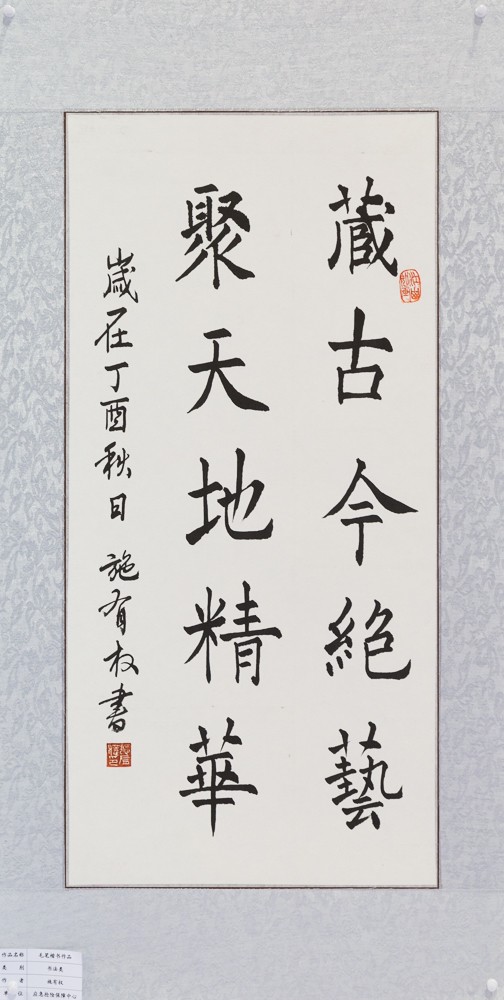 藏古今絕藝
聚天地精華
歲在丁酉秋日 施有权書
作品名称 毛笔楷书作品
类 别 书法类
作 者 施有权
单 位